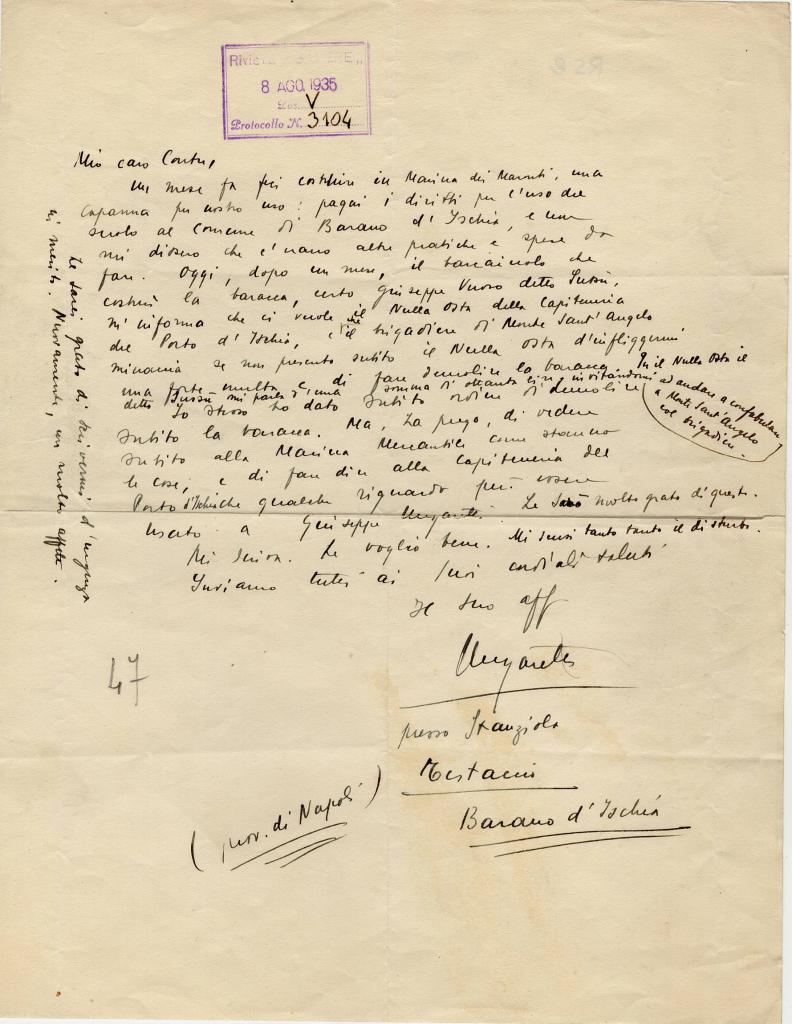 8 AGO. 1935
Pos. V
Protocollo N. 3104
Mio caro
un mese fa feci costruire in Marina dei Maronti, una
capanna per nostro uso: pagai i diritti per l'uso del
suolo al Comune di Barano d'Ischia, e non
mi dissero che c'erano altre pratiche e spese da
fare. Oggi, dopo un mese, il barcaiuolo che
costruì la baracca, certo Giuseppe detto
m'informa che ci vuole il Nulla Osta della Capitaneria
del Porto d'Ischia, e che il brigadiere di Monte Sant'Angelo
minaccia se non presento subito il Nulla Osta d'infliggermi
una forte multa e di fare demolire la baracca. Per il Nulla Osta il
detto mi parla d'una somma di ottanta lire invitandomi ad andare a confabulare
a Monte Sant'Angelo
col brigadiere.
Io stesso ho dato subito ordine di demolire
subito la baracca. Ma, La prego, di vedere
subito alla Marina Mercantile come stanno
le cose, e di fare dire alla Capitaneria del
Porto d'Ischia che qualche riguardo può essere
usato a Giuseppe Ungaretti. Le sarò molto grato di questo.
Mi scriva. Le voglio bene. Mi scusi tanto tanto il disturbo.
Inviamo tutti ai Suoi cordiali saluti
Il suo aff
Ungaretti
presso Stanziola
Testaccio
Barano d'Ischia
(prov. di Napoli)
Le sarei grato di scrivermi d'urgenza
in merito. Nuovamente, con molto affetto.
47